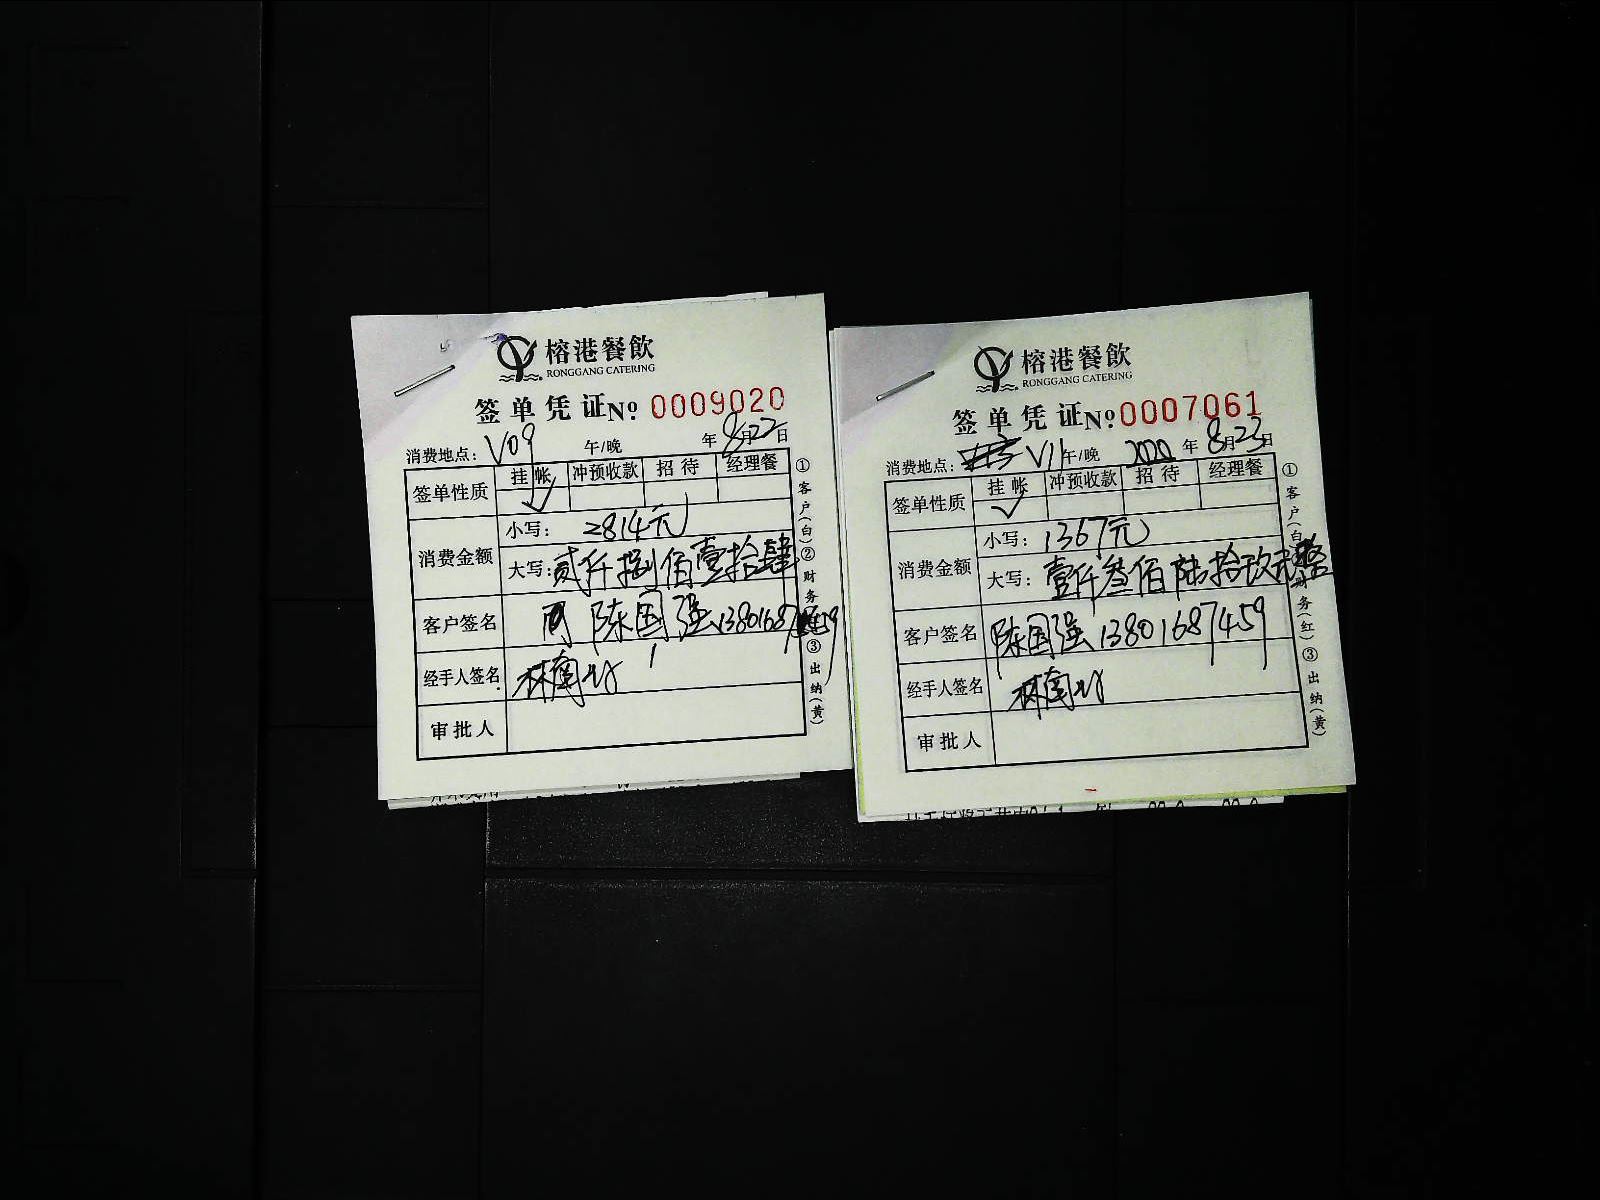 榕港餐飲
RONGGANG CATERING
签单凭证 No. 0009020
消费地点： V09 午/晚 年 8月22日
签单性质 挂帐 冲预收款 招待 经理餐
✓
消费金额 小写： 2814元
大写： 贰仟捌佰壹拾肆
客户签名 陈国强 13801687459
经手人签名
审批人
①客户(白)②财务(红)③出纳(黄)
榕港餐飲
RONGGANG CATERING
签单凭证 No. 0007061
消费地点： V11 午/晚 2020年 8月23日
签单性质 挂帐 冲预收款 招待 经理餐
✓
消费金额 小写： 1367元
大写： 壹仟叁佰陆拾玖元整
客户签名 陈国强 13801687459
经手人签名
审批人
①客户(白)②财务(红)③出纳(黄)